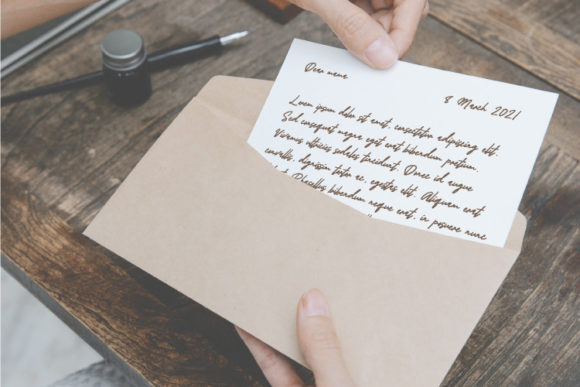 Dear name
8 March 2021
Lorem ipsum dolor sit amet, consectetur adipiscing elit.
Sed consequat neque eget erat bibendum pretium.
Vivamus ultricies sodales tincidunt. Donec id augue
convallis, dignissim tortor ec, egestas elit. Aliquam erat
Phasellus bibendum neque erat, in posuere nunc